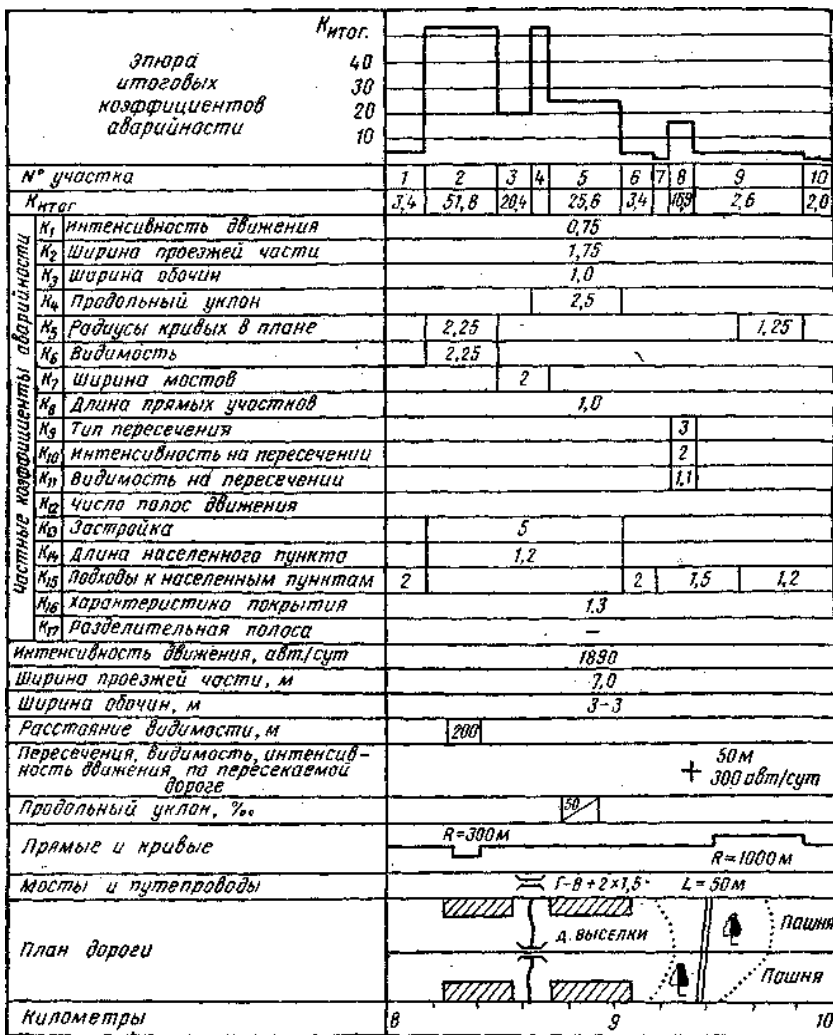 Китог.
Эпюра
итоговых
коэффициентов
аварийности
40
30
20
10
N° участка 1 2 3 4 5 6 7 8 9 10
Китог 3,4 51,8 20,4 25,6 3,4 2,6 2,0
Частные коэффициенты аварийности
К1 Интенсивность движения 0,75
К2 Ширина проезжей части 1,75
К3 Ширина обочин 1,0
К4 Продольный уклон 2,5
К5 Радиусы кривых в плане 2,25 1,25
К6 Видимость 2,25
К7 Ширина мостов 2
К8 Длина прямых участков 1,0
К9 Тип пересечения 3
К10 Интенсивность на пересечении 2
К11 Видимость на пересечении 1,1
К12 Число полос движения
К13 Застройка 5
К14 Длина населенного пункта 1,2
К15 Подходы к населенным пунктам 2 2 1,5 1,2
К16 Характеристика покрытия 1,3
К17 Разделительная полоса –
Интенсивность движения, авт./сут 1890
Ширина проезжей части, м 7,0
Ширина обочин, м 3-3
Расстояние видимости, м 200
Пересечения, видимость, интенсив-
ность движения по пересекаемой
дороге
50м
+ 300 авт/сут
Продольный уклон, ‰ 50
Прямые и кривые R=300м R=1000м
Мосты и путепроводы Г-8+2×1,5 L=50м
План дороги д. ВЫСЕЛКИ Пашня
Пашня
Километры 8 9 10